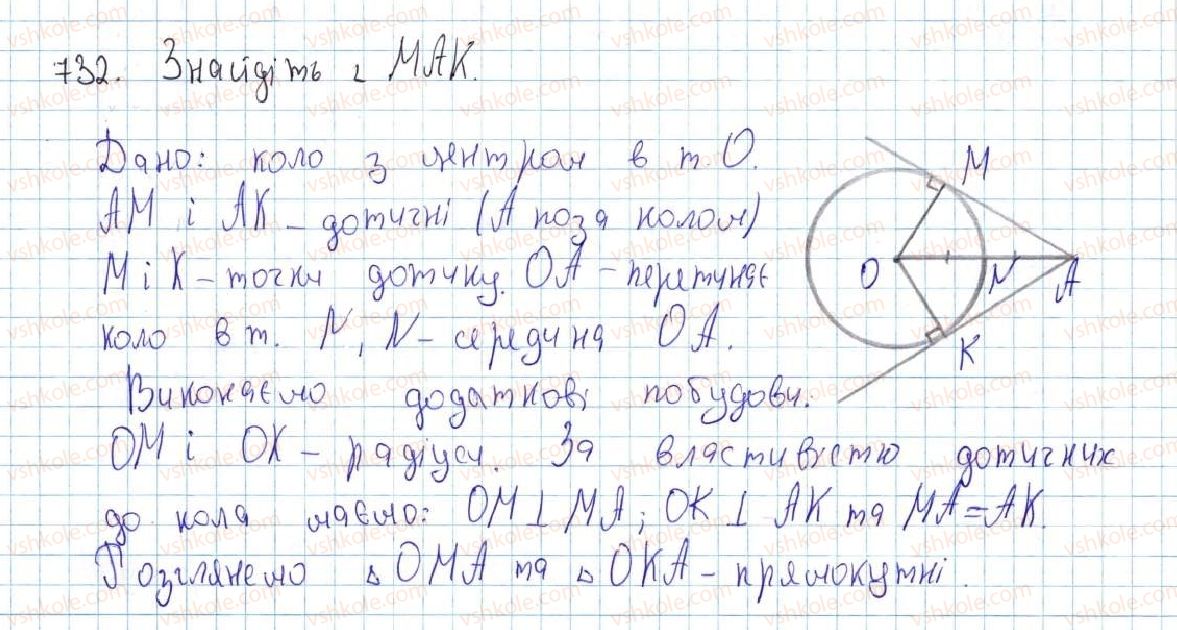 732. Знайдіть ∠ МАК.
Дано: коло з центром в т. О.
АМ і АК - дотичні (А поза колом)
М і К - точки дотику. ОА - перетинає
коло в т. N, N - середина ОА.
Виконаємо додаткові побудови.
ОМ і ОК - радіуси. За властивістю дотичних
до кола маємо: ОМ ⊥ МА; ОК ⊥ АК та МА = АК.
Розглянемо △ ОМА та △ ОКА - прямокутні.
M
O
N
A
K
vshkole.com